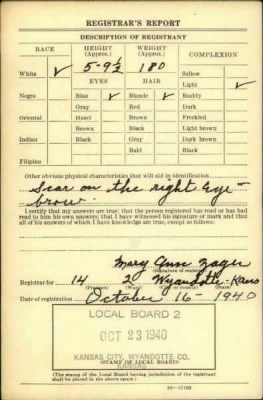 REGISTRAR'S REPORT
DESCRIPTION OF REGISTRANT
RACE HEIGHT (Approx.) WEIGHT (Approx.) COMPLEXION
White ✓ 5-9½ 180 Sallow
EYES HAIR Light ✓
Negro Blue ✓ Blonde ✓ Ruddy
Gray Red Dark
Oriental Hazel Brown Freckled
Brown Black Light brown
Indian Black Gray Dark brown
Bald Black
Filipino
Other obvious physical characteristics that will aid in identification
Scar on the right Eye-
brow.
I certify that my answers are true; that the person registered has read or has had
read to him his own answers; that I have witnessed his signature or mark and that
all of his answers of which I have knowledge are true, except as follows:
Mary Ann Zager
(Signature of registrar)
Registrar for 14 2 Wyandotte-Kans
(Precinct) (Ward) (City or county) (State)
Date of registration October 16-1940
LOCAL BOARD 2
OCT 23 1940
KANSAS CITY, WYANDOTTE CO.
KANSAS
STAMP OF LOCAL BOARD
(The stamp of the Local Board having jurisdiction of the registrant
shall be placed in the above space.)